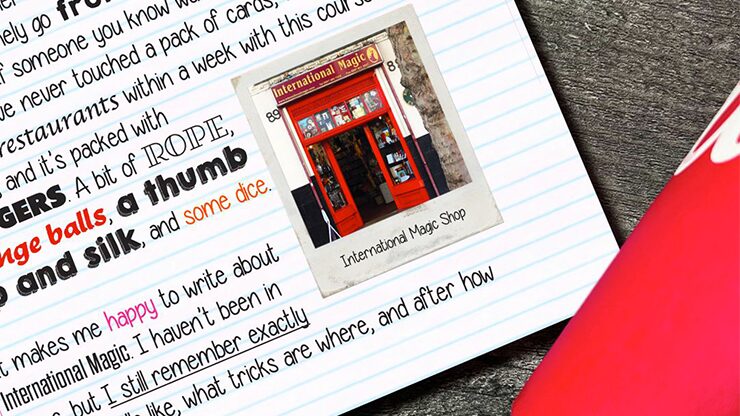 go
someone you know
never touched a pack of cards,
restaurants within a week with this
and it's packed with
GERS. A bit of ROPE,
nge balls, a thumb
and silk, and some dice.
International Magic
89
8
International Magic Shop
t makes me happy to write about
International Magic. I haven't been in
but I still remember exactly
like, what tricks are where, and after how